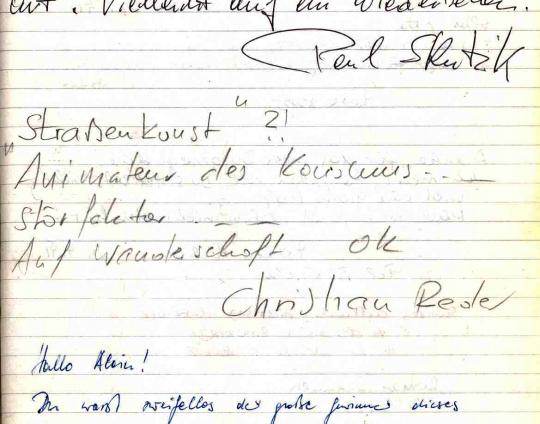 Vielleicht auf ein Wiedersehen.
Paul Skutzik
"Straßenkunst" ?!
Animateur des Konsums...
Störfaktor...
Auf Wanderschaft OK
Christian Reder
Hallo Alwin!
Du warst zweifellos der große Gewinner dieses